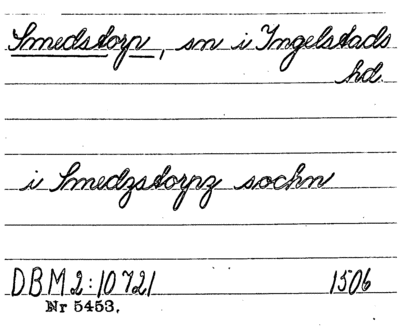 Smedstorp, sn i Ingelstads
hd.
i Smedzstorpz sochn
DBM2:10721 1506
Nr 5453.